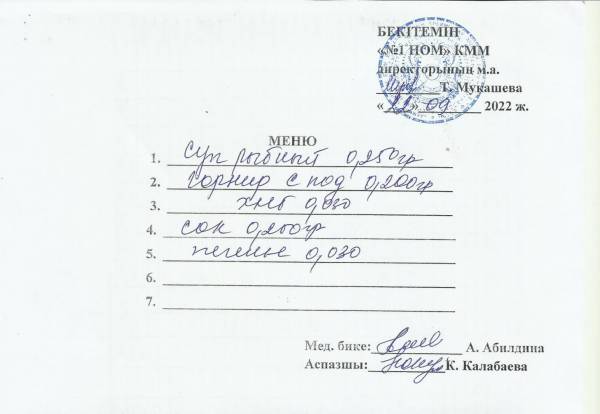 БЕКІТЕМІН
«№1 НОМ» КММ
директорының м.а.
Т. Мукашева
« 22 » 09 2022 ж.
МЕНЮ
1. Суп рыбный 0,250гр
2. гарнир с под 0,200гр
3. хлеб 0,030
4. сок 0,200гр
5. печенье 0,030
6.
7.
Мед. бике: А. Абилдина
Аспазшы: К. Калабаева